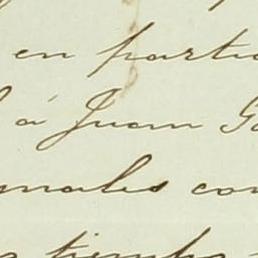 en parti
á Juan Ga
males con
tiempo